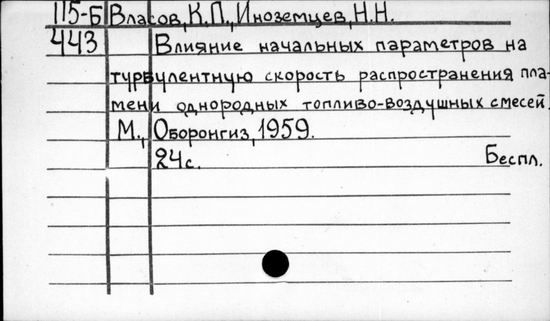 115-Б Власов, К.П., Иноземцев, Н.Н.
443 Влияние начальных параметров на
турбулентную скорость распространения пла-
мени однородных топливо-воздушных смесей.
М., Оборонгиз, 1959.
24с. Беспл.